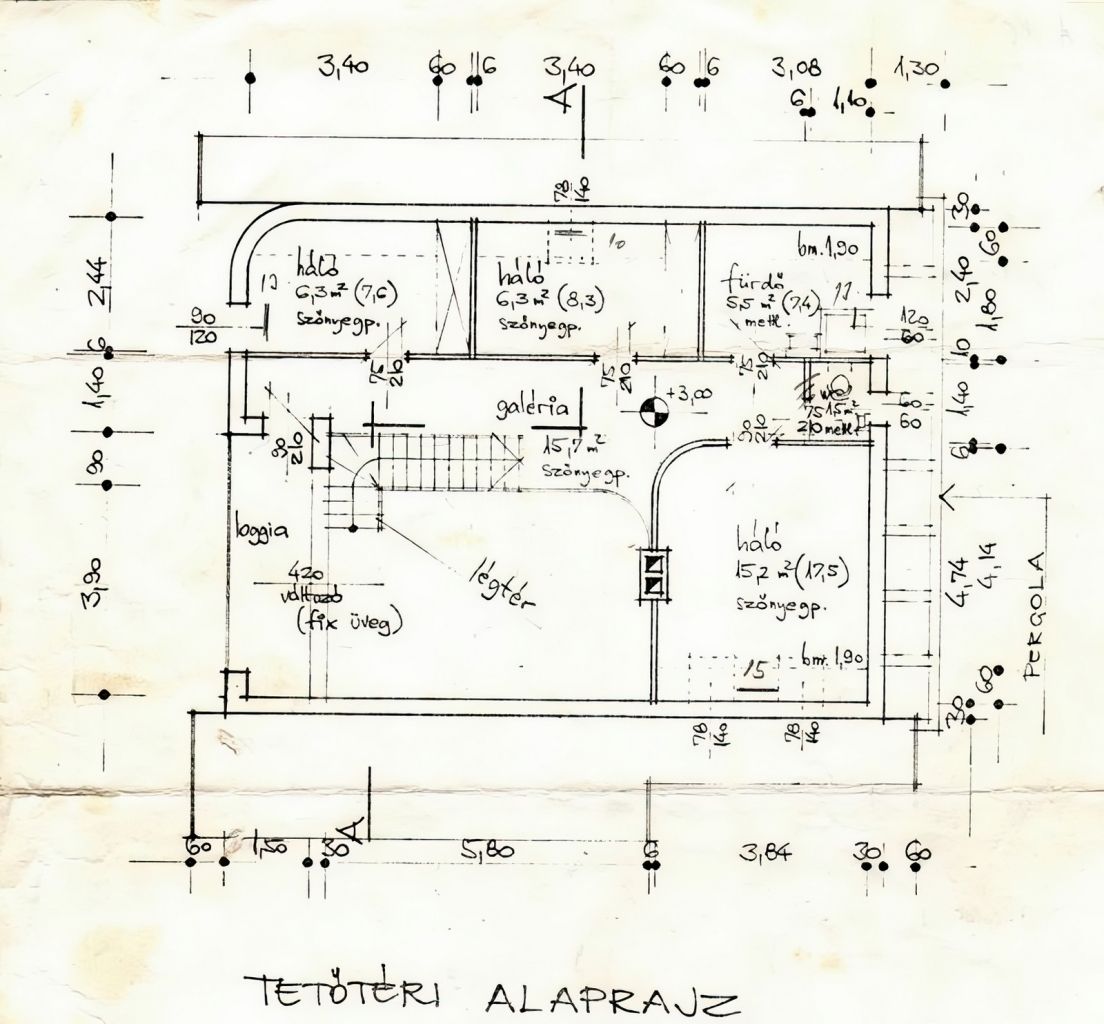 3,40 60 6 3,40 60 6 3,08 1,30
A 6 1,10
78
140
30
60
2,40
1,80
10
1,40
6
4,74
4,14
60
30
2,44
6
1,40
90
3,90
háló
6,3 m² (7,6)
szőnyegp.
háló
6,3 m² (8,3)
szőnyegp.
bm. 1,90
fürdő
5,5 m² (7,4)
metl.
90
120
120
60
75
210
75
210
75
210
galéria
+3,00
15,7 m²
szőnyegp.
wc
75 1,5 m²
210 metl.
60
60
90
210
90
210
loggia
420
változó
(fix üveg)
légtér
háló
15,2 m² (17,5)
szőnyegp.
15
bm. 1,90
78
140
78
140
PERGOLA
A
60 1,50 30 5,80 6 3,84 30 60
TETŐTÉRI ALAPRAJZ